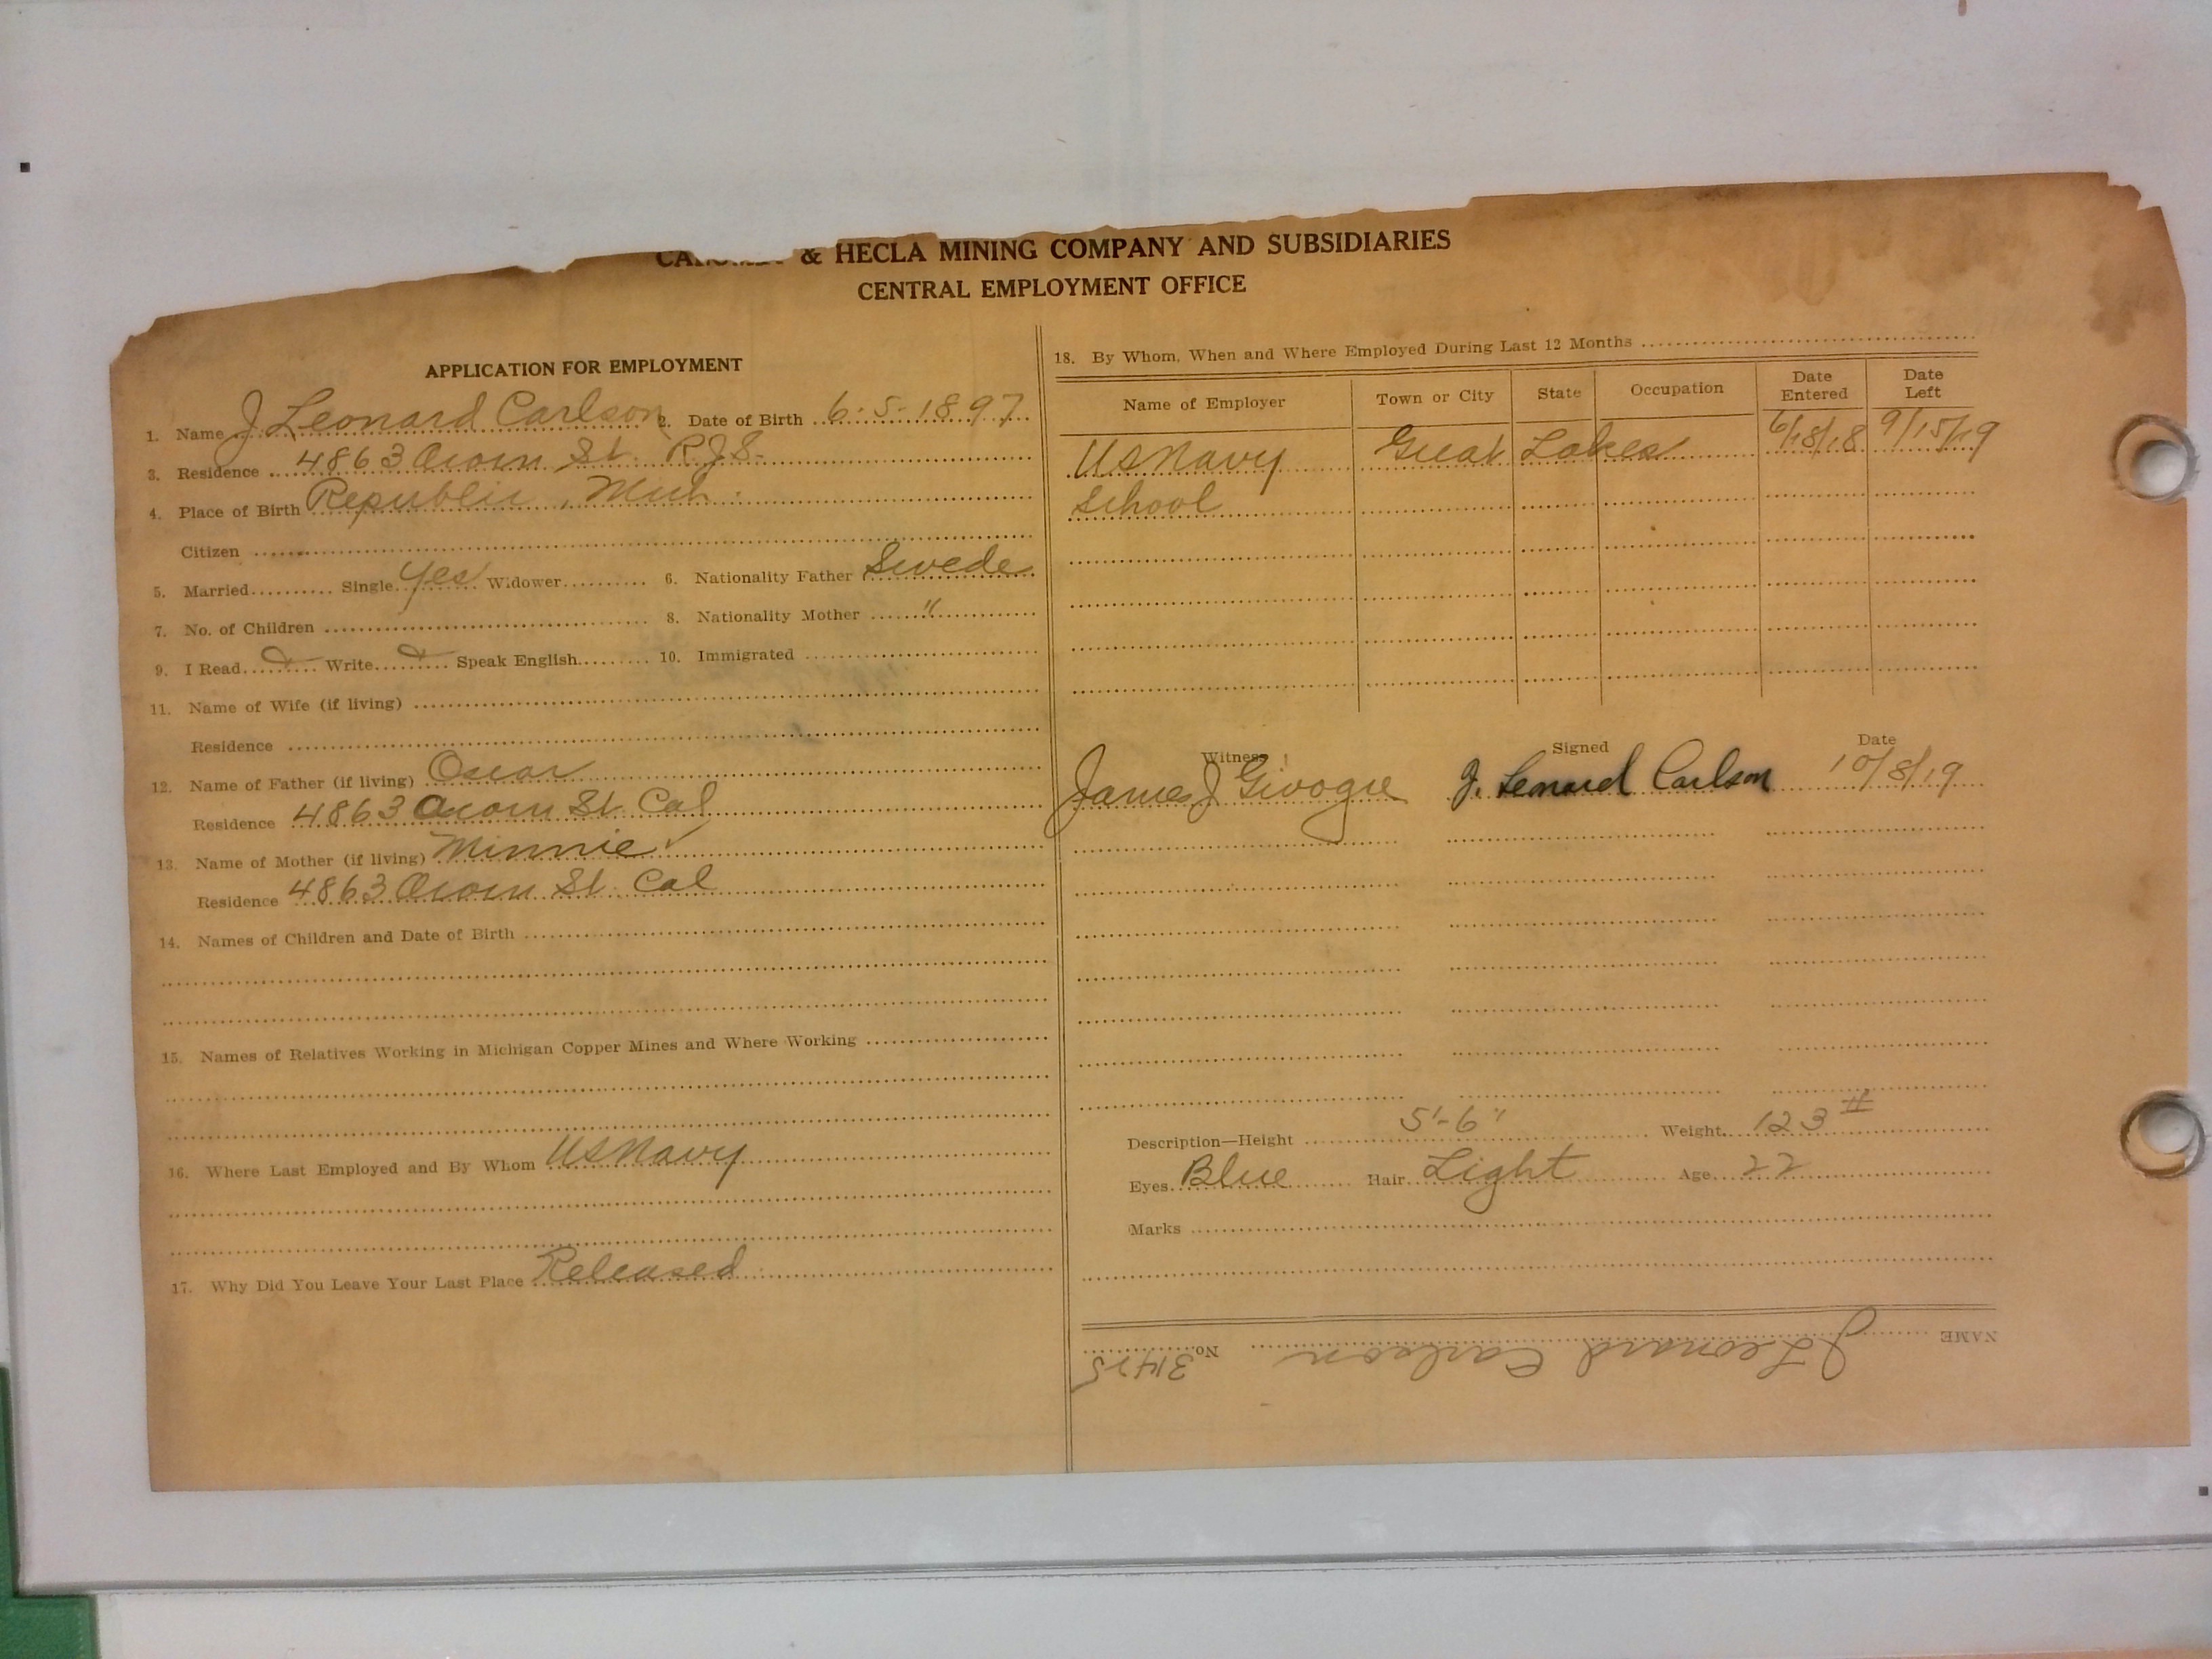 & HECLA MINING COMPANY AND SUBSIDIARIES
CENTRAL EMPLOYMENT OFFICE
APPLICATION FOR EMPLOYMENT
1. Name J Leonard Carlson 2. Date of Birth 6-5-1897
3. Residence 4863 Acorn St. R.J.S.
4. Place of Birth Republic, Mich.
Citizen
5. Married Single Yes Widower 6. Nationality Father Swede
7. No. of Children 8. Nationality Mother "
9. I Read Write Speak English 10. Immigrated
11. Name of Wife (if living)
Residence
12. Name of Father (if living) Oscar
Residence 4863 Acorn St. Cal
13. Name of Mother (if living) Minnie
Residence 4863 Acorn St. Cal
14. Names of Children and Date of Birth
15. Names of Relatives Working in Michigan Copper Mines and Where Working
16. Where Last Employed and By Whom US Navy
17. Why Did You Leave Your Last Place Released
18. By Whom, When and Where Employed During Last 12 Months
Name of Employer Town or City State Occupation Date Entered Date Left
US Navy Great Lakes 6/18/18 9/15/19
School
Witness Signed Date
James J J. Leonard Carlson 10/8/19
Description—Height 5'-6" Weight 123 #
Eyes Blue Hair Light Age 22
Marks
NAME J Leonard Carlson No. 31425